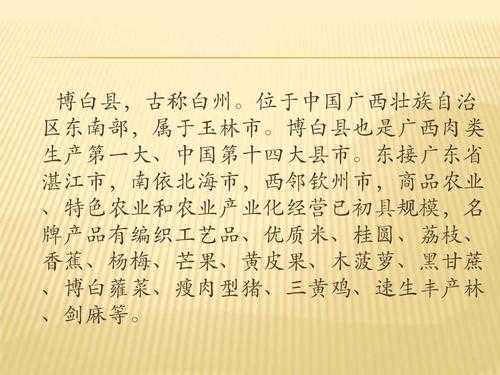 博白县，古称白州。位于中国广西壮族自治
区东南部，属于玉林市。博白县也是广西肉类
生产第一大、中国第十四大县市。东接广东省
湛江市，南依北海市，西邻钦州市，商品农业
、特色农业和农业产业化经营已初具规模，名
牌产品有编织工艺品、优质米、桂圆、荔枝、
香蕉、杨梅、芒果、黄皮果、木菠萝、黑甘蔗
、博白蕹菜、瘦肉型猪、三黄鸡、速生丰产林
、剑麻等。